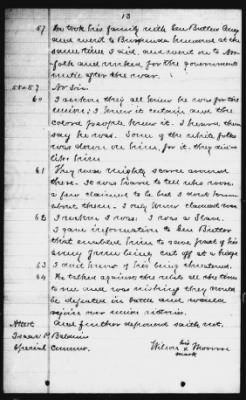 13
57 He took his family with Gen Butlers Army
and went to Bermuda Hundred at the
same time I did. and went on to Nor-
folk and worked for the government
until after the war.
58 & 59 No Sir.
60 I reckon they all knew he was for the
union; I knew it certain and the
colored people knew it. I heard them
say he was. Some of the white folks
was down on him, for it. they dis-
liked him
61 They was mighty scarce around
there. It was hard to tell who
a few claimed to be but I dont know
about them. I only knew claimed was
62 I reckon I was. I was a Slave.
I gave information to Gen Butler
that enabled him to save part of his
army from being cut off at a bridge
63 I dont know of his being threatened.
64 He talked against the rebs all the time
to me and was wishing they would
be defeated in battle and would
rejoice over union victories.
And further deposed saith not.
Attest
Isaac P. Baldwin
Special Commr.
Wilson his x mark